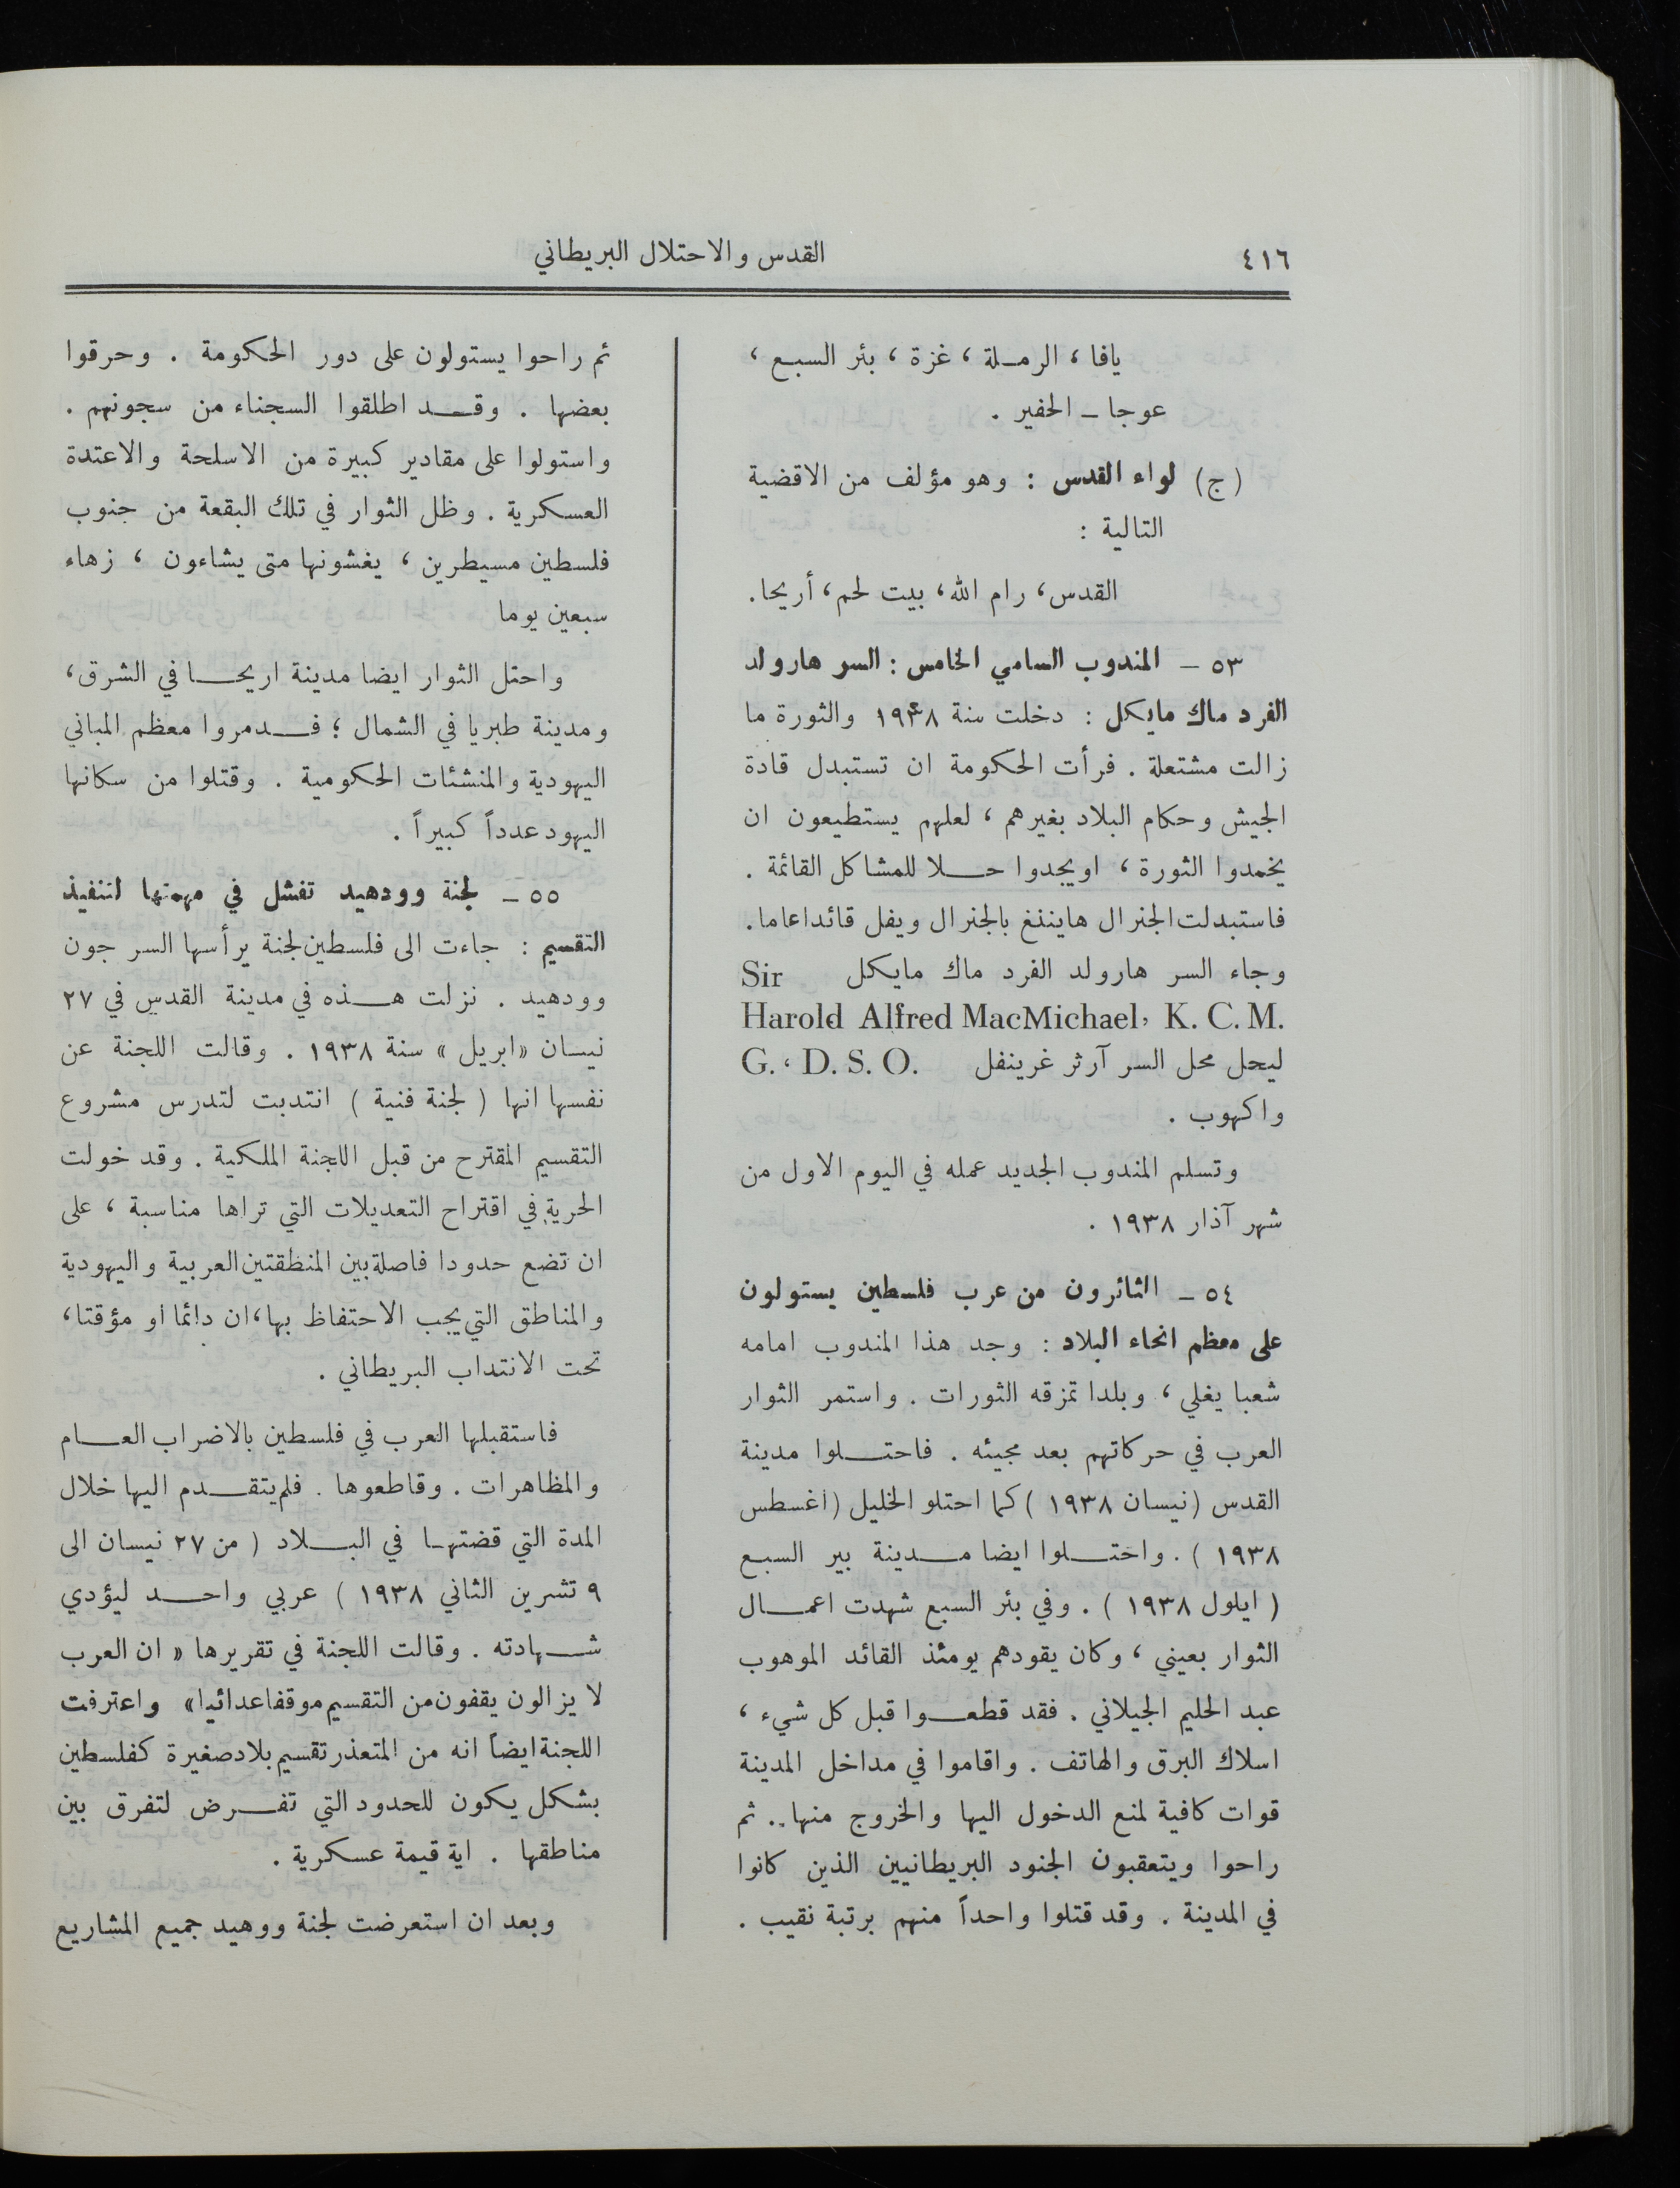 ٤١٦
القدس والاحتلال البريطاني
يافا ، الرملة ، غزة ، بئر السبع ،
عوجا – الحفير .
(ج) لواء القدس : وهو مؤلف من الاقضية
التالية :
القدس، رام الله، بيت لحم، أريحا.
٥٣ – المندوب السامي الخامس : السر هارولد
الفرد ماك مايكل : دخلت سنة ١٩٣٨ والثورة ما
زالت مشتعلة . فرأت الحكومة ان تستبدل قادة
الجيش وحكام البلاد بغيرهم ، لعلهم يستطيعون ان
يخمدوا الثورة ، او يجدوا حلا للمشاكل القائمة .
فاستبدلت الجنرال هايننغ بالجنرال ويفل قائداعاما.
وجاء السر هارولد الفرد ماك مايكل Sir
Harold Alfred MacMichael, K. C. M.
G. ، D. S. O. ليحل محل السر آرثر غرينفل
واكهوب .
وتسلم المندوب الجديد عمله في اليوم الاول من
شهر آذار ١٩٣٨ .
٥٤ – الثائرون من عرب فلسطين يستولون
على معظم انحاء البلاد : وجد هذا المندوب امامه
شعبا يغلي ، وبلدا تمزقه الثورات . واستمر الثوار
العرب في حركاتهم بعد مجيئه . فاحتلوا مدينة
القدس (نيسان ١٩٣٨) كما احتلو الخليل (اغسطس
١٩٣٨ ) . واحتلوا ايضا مدينة بير السبع
( ايلول ١٩٣٨ ) . وفي بئر السبع شهدت اعمال
الثوار بعيني ، وكان يقودهم يومئذ القائد الموهوب
عبد الحليم الجيلاني . فقد قطعوا قبل كل شيء ،
اسلاك البرق والهاتف . واقاموا في مداخل المدينة
قوات كافية لمنع الدخول اليها والخروج منها.. ثم
راحوا ويتعقبون الجنود البريطانيين الذين كانوا
في المدينة . وقد قتلوا واحداً منهم برتبة نقيب .
ثم راحوا يستولون على دور الحكومة . وحرقوا
بعضها . وقد اطلقوا السجناء من سجونهم .
واستولوا على مقادير كبيرة من الاسلحة والاعتدة
العسكرية . وظل الثوار في تلك البقعة من جنوب
فلسطين مسيطرين ، يغشونها متى يشاءون ، زهاء
سبعين يوما
واحتل الثوار ايضا مدينة اريحا في الشرق،
ومدينة طبريا في الشمال ؛ فدمروا معظم المباني
اليهودية والمنشئات الحكومية . وقتلوا من سكانها
اليهود عدداً كبيراً .
٥٥ – لجنة وودهيد تفشل في مهمتها لتنفيذ
التقسيم : جاءت الى فلسطين لجنة يرأسها السر جون
وودهيد . نزلت هذه في مدينة القدس في ٢٧
نيسان «ابريل» سنة ١٩٣٨ . وقالت اللجنة عن
نفسها انها ( لجنة فنية ) انتدبت لتدرس مشروع
التقسيم المقترح من قبل اللجنة الملكية . وقد خولت
الحرية في اقتراح التعديلات التي تراها مناسبة ، على
ان تضع حدودا فاصلة بين المنطقتين العربية واليهودية
والمناطق التي يجب الاحتفاظ بها، ان دائما او مؤقتا،
تحت الانتداب البريطاني .
فاستقبلها العرب في فلسطين بالاضراب العام
والمظاهرات . وقاطعوها . فلم يتقدم اليها خلال
المدة التي قضتها في البلاد ( من ٢٧ نيسان الى
٩ تشرين الثاني ١٩٣٨ ) عربي واحد ليؤدي
شهادته . وقالت اللجنة في تقريرها « ان العرب
لا يزالون يقفون من التقسيم موقفا عدائيا» واعترفت
اللجنة ايضاً انه من المتعذر تقسيم بلاد صغيرة كفلسطين
بشكل يكون للحدود التي تفرض لتفرق بين
مناطقها . اية قيمة عسكرية .
وبعد ان استعرضت لجنة ووهيد جميع المشاريع